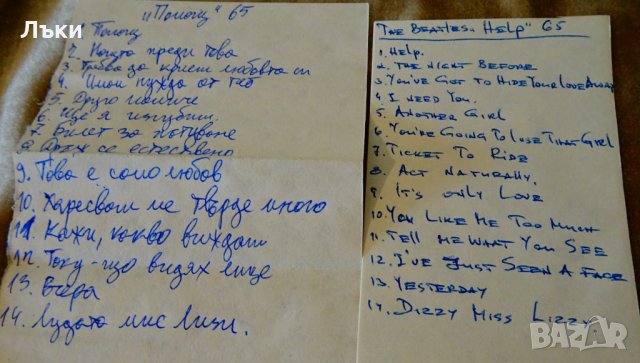 Лъки
"Помощ" 65
Помощ
2. Нощта преди това
3. Трябва да криеш любовта си
4. Имам нужда от теб
5. Друго момиче
6. Ще я изгубиш
7. Билет за пътуване
8. се естествено
9. Това е само любов
10. Харесваш ме твърде много
11. Кажи, какво виждаш
12. Току-що видях лице
13. Вчера
14. Лудата мис Лизи.
THE BEATLES. HELP" 65
1. HELP.
2. THE NIGHT BEFORE
3. YOU'VE GOT TO HIDE YOUR LOVE AWAY
4. I NEED YOU.
5. ANOTHER GIRL
6. YOU'RE GOING TO LOSE THAT GIRL
7. TICKET TO RIDE
8. ACT NATURALLY.
9. IT'S ONLY LOVE
10. YOU LIKE ME TOO MUCH
11. TELL ME WHAT YOU SEE
12. I'VE JUST SEEN A FACE
13. YESTERDAY
14. DIZZY MISS LIZZY
BAZAR